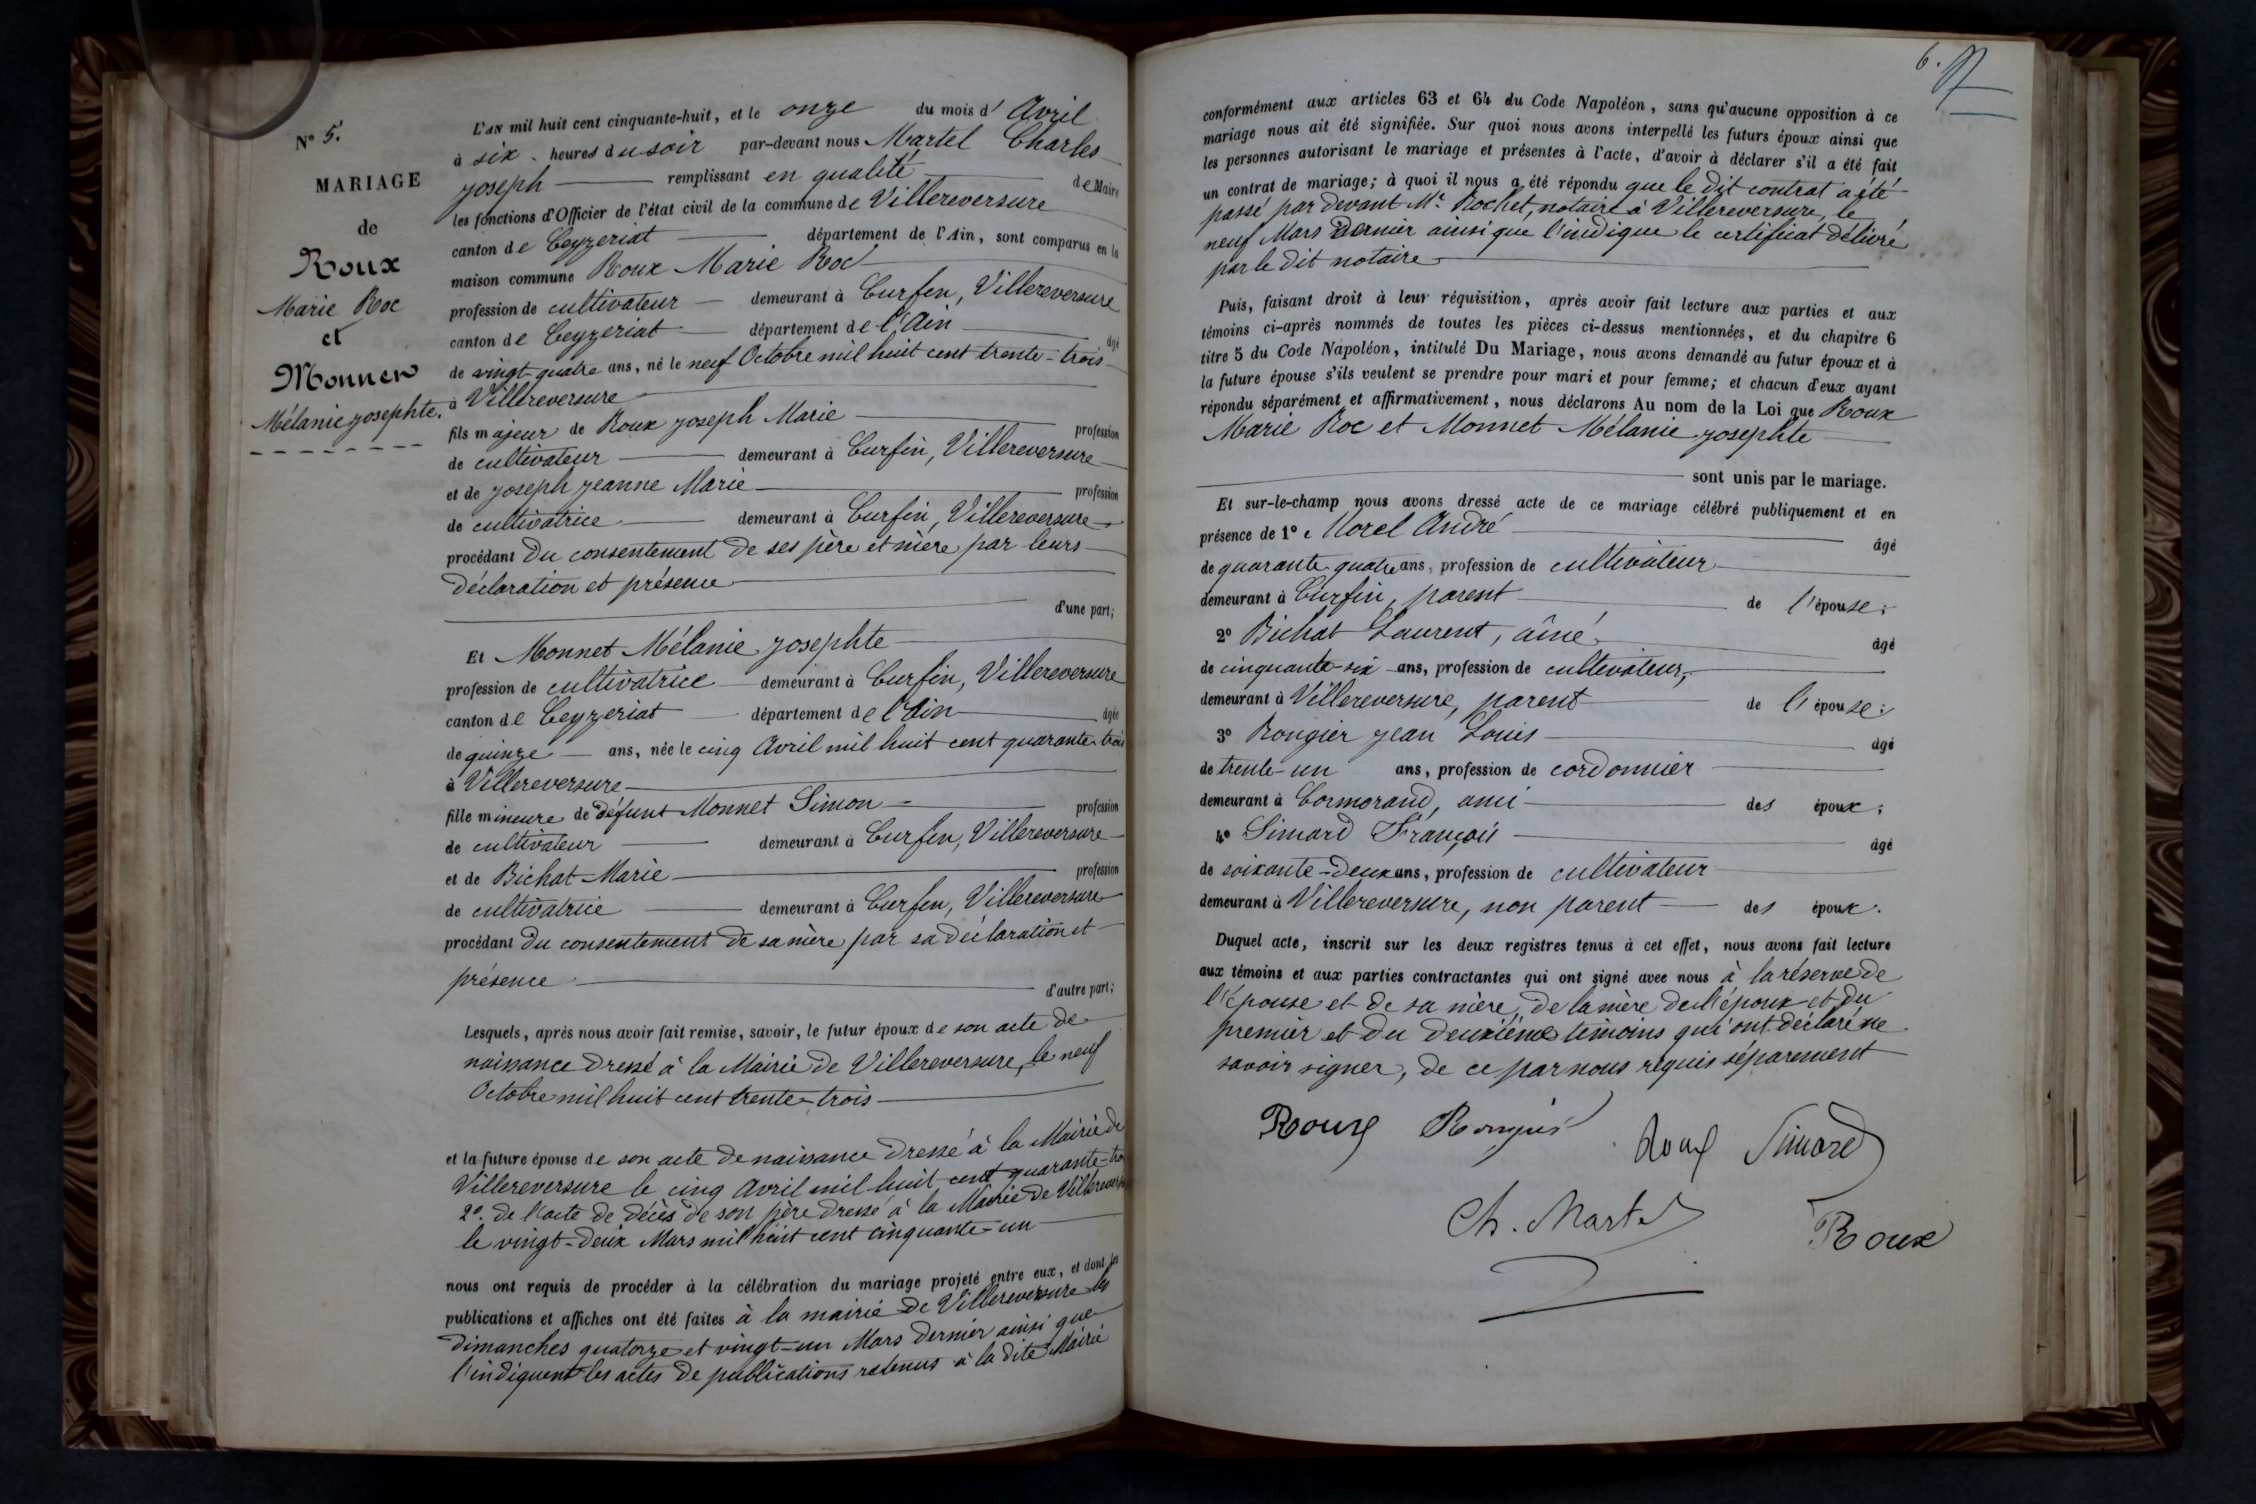 N° 5.
MARIAGE
de
Roux
Marie Roc
et
Monnet
Mélanie josephte.
L'AN mil huit cent cinquante-huit, et le onze du mois d'Avril
à six heures du soir par-devant nous Martel Charles
joseph remplissant en qualité de Maire
les fonctions d'Officier de l'état civil de la commune de Villereversure
canton de Ceyzeriat département de l'Ain, sont comparus en la
maison commune Roux Marie Roc
profession de cultivateur demeurant à Curfin, Villereversure
canton de Ceyzeriat département de l'Ain âgé
de vingt-quatre ans, né le neuf Octobre mil huit cent trente-trois
à Villereversure
fils majeur de Roux joseph Marie profession
de cultivateur demeurant à Curfin, Villereversure
et de joseph jeanne Marie profession
de cultivatrice demeurant à Curfin, Villereversure
procédant du consentement de ses père et mère par leurs
déclaration et présence
d'une part;
Et Monnet Mélanie josephte
profession de cultivatrice demeurant à Curfin, Villereversure
canton de Ceyzeriat département de l'Ain âgée
de quinze ans, née le cinq Avril mil huit cent quarante-trois
à Villereversure
fille mineure de défunt Monnet Simon profession
de cultivateur demeurant à Curfin, Villereversure
et de Bichat Marie profession
de cultivatrice demeurant à Curfin, Villereversure
procédant du consentement de sa mère par sa déclaration et
présence
d'autre part;
Lesquels, après nous avoir fait remise, savoir, le futur époux de son acte de
naissance dressé à la Mairie de Villereversure, le neuf
Octobre mil huit cent trente-trois
et la future épouse de son acte de naissance dressé à la Mairie de
Villereversure le cinq Avril mil huit cent quarante-trois
2° de l'acte de décès de son père dressé à la Mairie de Villereversure
le vingt-deux Mars mil huit cent cinquante-un
nous ont requis de procéder à la célébration du mariage projeté entre eux, et dont les
publications et affiches ont été faites à la mairie de Villereversure les
dimanches quatorze et vingt-un Mars dernier ainsi que
l'indiquent les actes de publications retenus à la dite Mairie
6.
conformément aux articles 63 et 64 du Code Napoléon, sans qu'aucune opposition à ce
mariage nous ait été signifiée. Sur quoi nous avons interpellé les futurs époux ainsi que
les personnes autorisant le mariage et présentes à l'acte, d'avoir à déclarer s'il a été fait
un contrat de mariage; à quoi il nous a été répondu que le dit contrat a été
passé par devant Me Rochet, notaire à Villereversure, le
neuf Mars dernier ainsi que l'indique le certificat délivré
par le dit notaire
Puis, faisant droit à leur réquisition, après avoir fait lecture aux parties et aux
témoins ci-après nommés de toutes les pièces ci-dessus mentionnées, et du chapitre 6
titre 5 du Code Napoléon, intitulé Du Mariage, nous avons demandé au futur époux et à
la future épouse s'ils veulent se prendre pour mari et pour femme; et chacun d'eux ayant
répondu séparément et affirmativement, nous déclarons Au nom de la Loi que Roux
Marie Roc et Monnet Mélanie josephte
sont unis par le mariage.
Et sur-le-champ nous avons dressé acte de ce mariage célébré publiquement et en
présence de 1° Morel André âgé
de quarante-quatre ans, profession de cultivateur
demeurant à Curfin, parent de l'épouse;
2° Bichat Laurent, aîné âgé
de cinquante-six ans, profession de cultivateur,
demeurant à Villereversure, parent de l'épouse;
3° Rongier jean Louis âgé
de trente-un ans, profession de cordonnier
demeurant à Cormorand, ami des époux;
4° Simard François âgé
de soixante-deux ans, profession de cultivateur
demeurant à Villereversure, non parent des époux.
Duquel acte, inscrit sur les deux registres tenus à cet effet, nous avons fait lecture
aux témoins et aux parties contractantes qui ont signé avec nous à la réserve de
l'épouse et de sa mère, de la mère de l'époux et du
premier et du deuxième témoins qui ont déclaré ne
savoir signer, de ce par nous requis séparement
Roux Rongier Roux Simard
Ch. Martel Roux